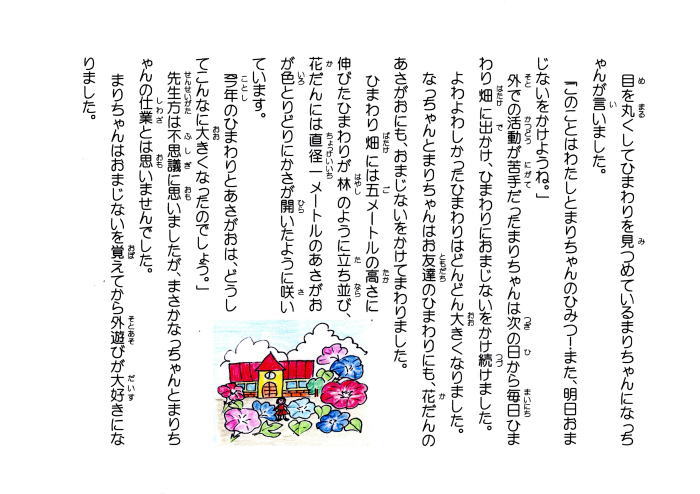 目を丸くしてひまわりを見つめているまりちゃんになっち
ゃんが言いました。
「このことはわたしとまりちゃんのひみつ!また、明日おま
じないをかけようね。」
外での活動が苦手だったまりちゃんは次の日から毎日ひま
わり畑に出かけ、ひまわりにおまじないをかけ続けました。
よわよわしかったひまわりはどんどん大きくなりました。
なっちゃんとまりちゃんはお友達のひまわりにも、花だんの
あさがおにも、おまじないをかけてまわりました。
ひまわり畑には五メートルの高さに
伸びたひまわりが林のように立ち並び、
花だんには直径一メートルのあさがお
が色とりどりにかさが開いたように咲い
ています。
「今年のひまわりとあさがおは、どうし
てこんなに大きくなったのでしょう。」
先生方は不思議に思いましたが、まさかなっちゃんとまりち
ゃんの仕業とは思いませんでした。
まりちゃんはおまじないを覚えてから外遊びが大好きにな
りました。